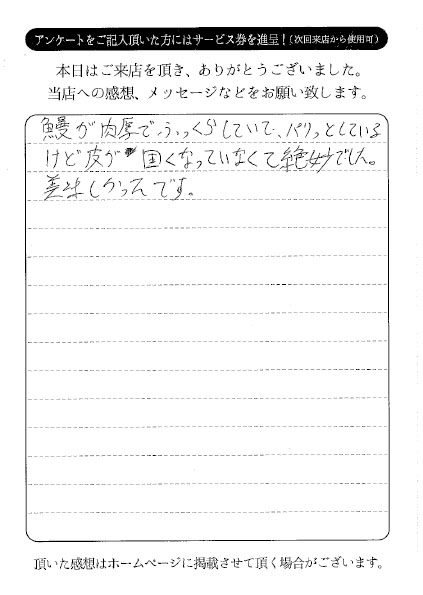 アンケートをご記入頂いた方にはサービス券を進呈！(次回来店から使用可)
本日はご来店を頂き、ありがとうございました。
当店への感想、メッセージなどをお願い致します。
鰻が肉厚でふっくらしていて、パリっとしている
けど皮が固くなっていなくて絶妙でした。
美味しかったです。
頂いた感想はホームページに掲載させて頂く場合がございます。